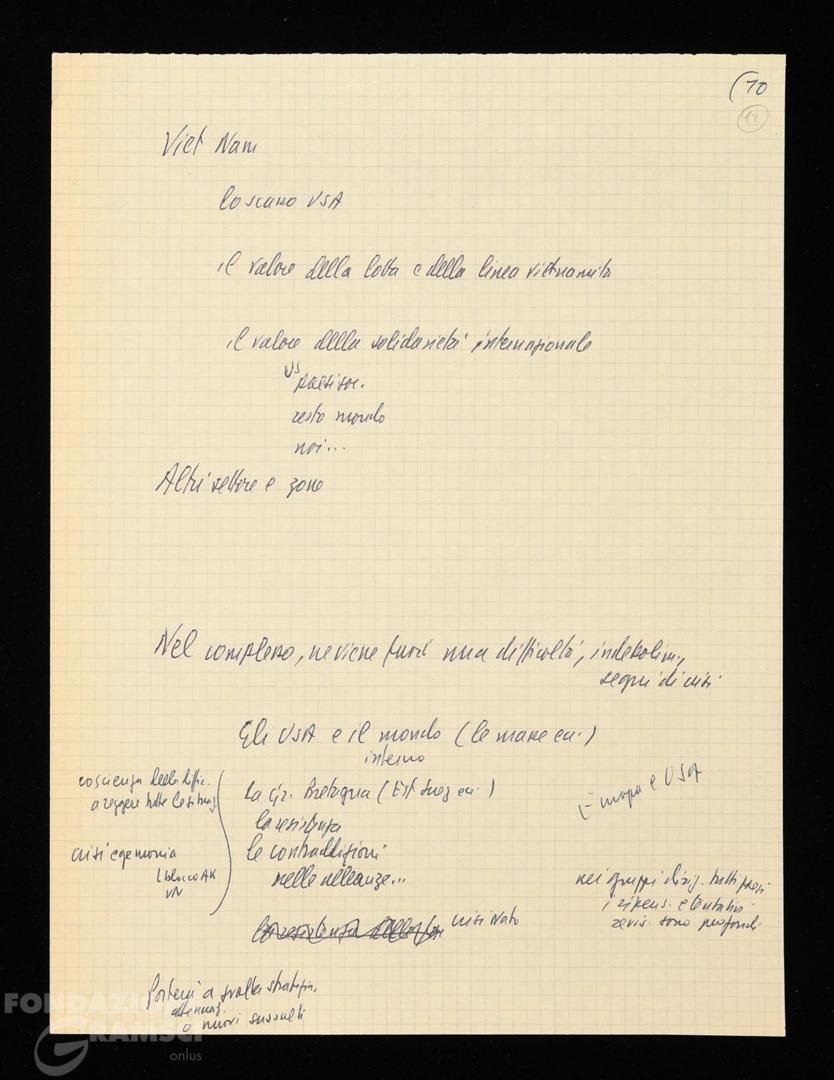 (10
12
Viet Nam
lo scacco USA
il valore della lotta e della linea vietnamita
il valore della solidarietà internazionale
US
paesi soc.
resto mondo
noi...
Altri settori e zone
Nel complesso, ne viene fuori una difficoltà, indebolim.,
segni di crisi
Gli USA e il mondo (le masse ecc.)
interno
coscienza della diffic.
a reggere tutte le situaz.
La Gr. Bretagna (Est Suez ecc.)
Europa e USA
la resistenza
crisi egemonia
le contraddizioni
nelle alleanze...
VN
nei gruppi dirig. tutti paesi
i ripens. e tentativi
revis. sono profondi
crisi Nato
Porterà a svolta strategia,
attenuaz.
o nuovi sussulti
FONDAZIONE
GRAMSCI
onlus